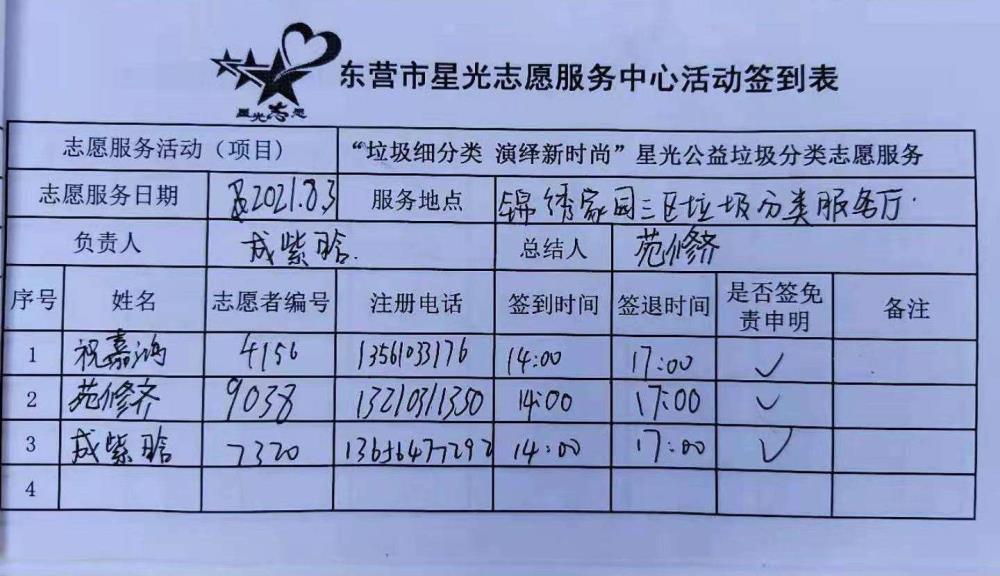 星光志愿
东营市星光志愿服务中心活动签到表
志愿服务活动（项目） “垃圾细分类 演绎新时尚”星光公益垃圾分类志愿服务
志愿服务日期 2021.8.3 服务地点 锦绣家园三区垃圾分类服务厅.
负责人 成紫晗. 总结人 苑修齐
序号 姓名 志愿者编号 注册电话 签到时间 签退时间 是否签免责申明 备注
1 祝嘉鸿 4156 13561033176 14:00 17:00 ✓
2 苑修齐 9038 13210311350 14:00 17:00 ✓
3 成紫晗 7320 13656477292 14:00 17:00 ✓
4